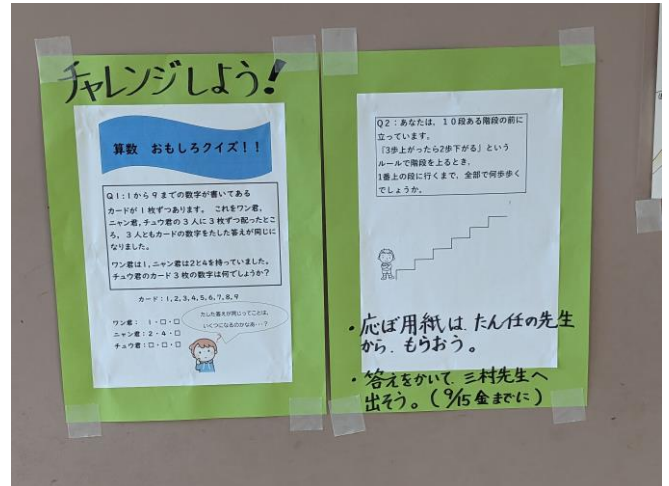 チャレンジしよう!
算数 おもしろクイズ!!
Q1:1から9までの数字が書いてある
カードが1枚ずつあります。 これをワン君,
ニャン君,チュウ君の3人に3枚ずつ配ったとこ
ろ,3人ともカードの数字をたした答えが同じに
なりました。
ワン君は1,ニャン君は2と4を持っていました。
チュウ君のカード3枚の数字は何でしょうか?
カード:1,2,3,4,5,6,7,8,9
ワン君: 1・□・□
ニャン君:2・4・□
チュウ君:□・□・□
たした答えが同じってことは,
いくつになるのかなあ…?
Q2:あなたは、10段ある階段の前に
立っています。
「3歩上がったら2歩下がる」という
ルールで階段を上るとき,
1番上の段に行くまで、全部で何歩歩く
でしょうか。
・応ぼ用紙は、たん任の先生
から、もらおう。
・答えをかいて、三村先生へ
出そう。(9/15金までに)